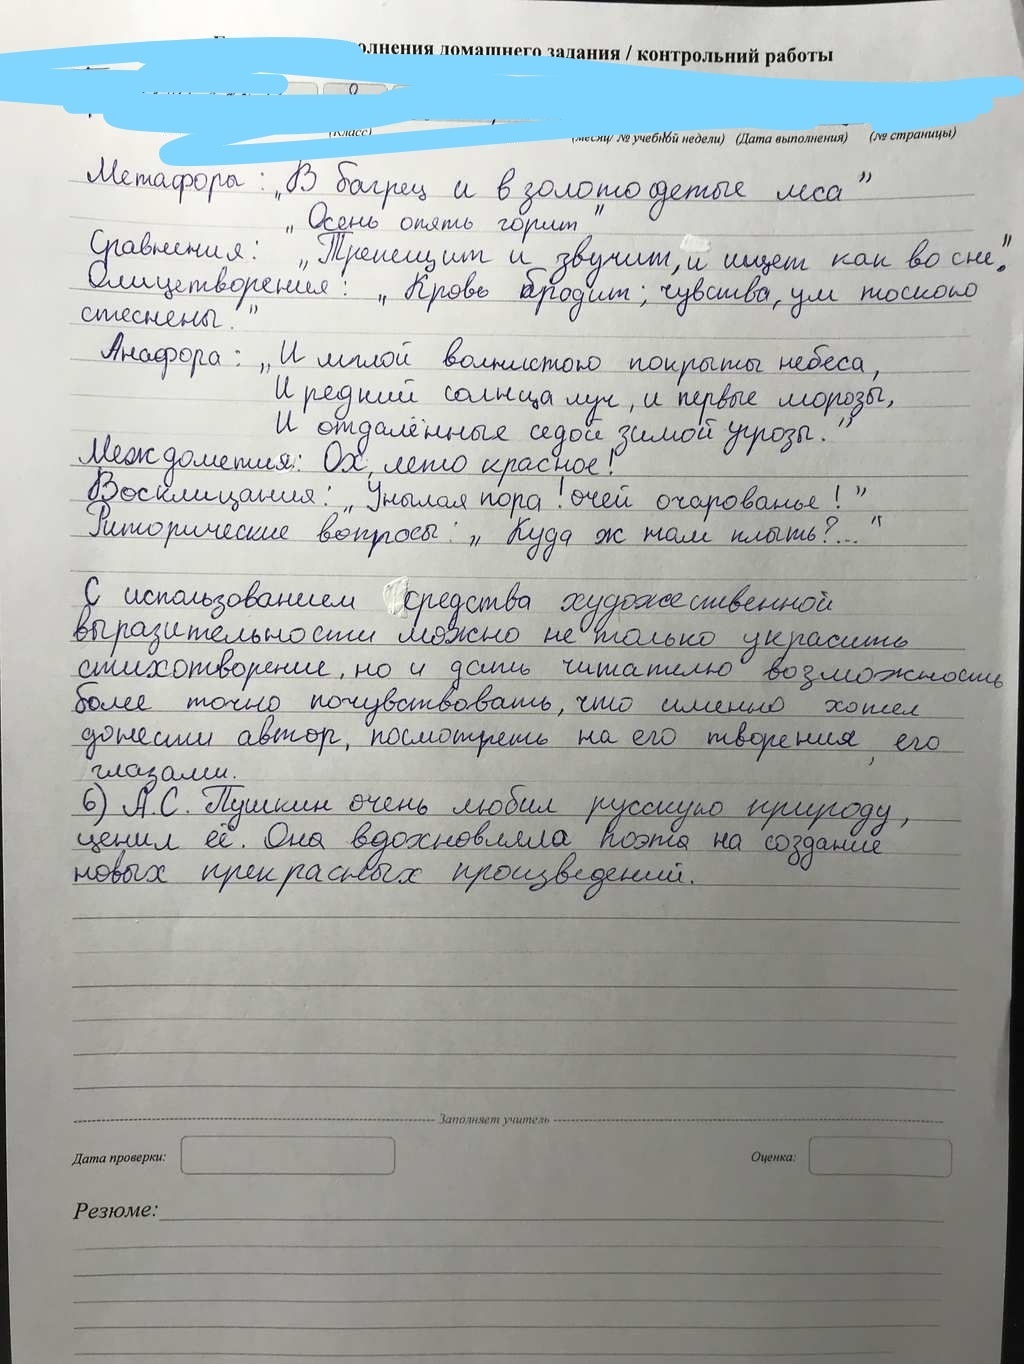 олнения домашнего задания / контрольний работы
(Класс) (месяц/ № учебной недели) (Дата выполнения) (№ страницы)
Метафоры: „В багрец и в золото одетые леса"
„Осень опять горит"
Сравнения: „Трепещит и звучит, и ищет как во сне."
Олицетворения: „Кровь бродит; чувства, ум тоскою
стеснены."
Анафора: „И мглой волнистою покрыты небеса,
И редкий солнца луч, и первые морозы,
И отдалённые седой зимой угрозы."
Междометия: Ох, лето красное!
Восклицания: „Унылая пора! очей очарованье!"
Риторические вопросы: „Куда ж нам плыть?..."
С использованием средства художественной
выразительности можно не только украсить
стихотворение, но и дать читателю возможность
более точно почувствовать, что именно хотел
донести автор, посмотреть на его творения, его
глазами.
6) А.С. Пушкин очень любил русскую природу,
ценил её. Она вдохновляла поэта на создание
новых прекрасных произведений.
Заполняет учитель
Дата проверки: Оценка:
Резюме: